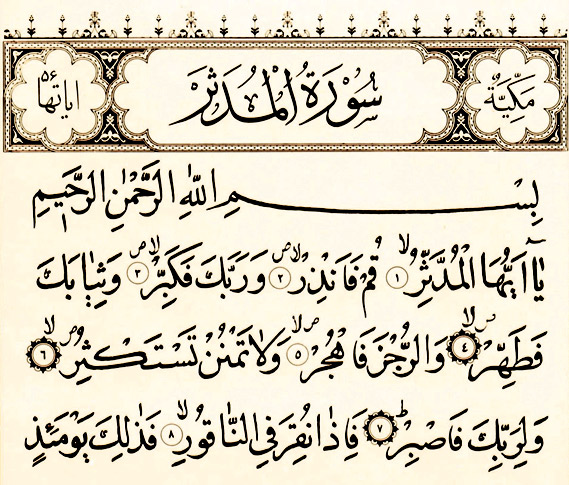 مَكِّيَّةٌ سُورَةُ الْمُدَّثِّرْ اٰيَاتُهَا ٥٦
بِسْمِ اللّٰهِ الرَّحْمٰنِ الرَّحٖيمِ
يَٓا اَيُّهَا الْمُدَّثِّرُۙ ﴿١﴾ قُمْ فَاَنْذِرْۙۖ ﴿٢﴾ وَرَبَّكَ فَكَبِّرْۙۖ ﴿٣﴾ وَثِيَابَكَ
فَطَهِّرْۙۖ ﴿٤﴾ وَالرُّجْزَ فَاهْجُرْۙۖ ﴿٥﴾ وَلَا تَمْنُنْ تَسْتَكْثِرُۙۖ ﴿٦﴾
وَلِرَبِّكَ فَاصْبِرْؕ ﴿٧﴾ فَاِذَا نُقِرَ فِي النَّاقُورِۙ ﴿٨﴾ فَذٰلِكَ يَوْمَئِذٍ